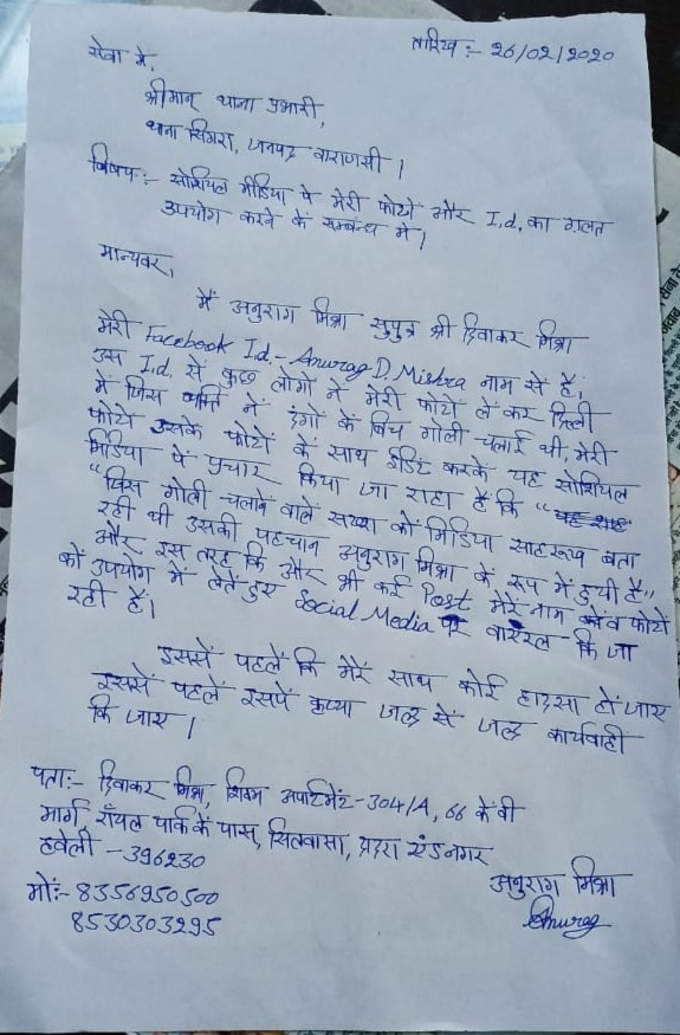 तारिख :- २6/02/2०२०
सेवा में,
श्रीमान् थाना प्रभारी,
थाना सिगरा, जनपद वाराणसी।
विषय:- सोशियल मीडिया पे मेरी फोटो और I.d. का ग़लत
उपयोग करने के सम्बन्ध में।
मान्यवर,
मैं अनुराग मिश्रा सुपुत्र श्री दिवाकर मिश्रा
मेरी Facebook I.d. - Anurag D. Mishra नाम से हैं,
उस I.d. सें कुछ लोगों ने मेरी फोटो लें कर दिल्ली
में जिस व्यक्ति नें दंगों कें बिच गोली चलाई थी, मेरी
फोटो उसके फोटो कें साथ इडिट करके यह सोशियल
मिडिया पें प्रचार किया जा राहा हैं कि “
“जिस गोली चलाने वालें सख्श को मिडिया साहरूख बता
रही थी उसकी पहचान अनुराग मिश्रा कें रूप में हुयी हैं”
और इस तरह कि और भी कई Post मेरें नाम व फोटो
कों उपयोग में लेतें हुए Social Media पर वायरल कि जा
रही हैं।
इससें पहलें कि मेरें साथ कोई हादसा हों जाए
इससें पहलें इसपें कृप्या जल्द सें जल्द कार्यवाही
कि जाए।
पता:- दिवाकर मिश्रा, शिवम अपार्टमेंट-304/A, 66 कें वी
मार्ग, रॉयल पार्क कें पास, सिलवासा, दादरा एंड नगर
हवेली - 396230
मों:- 8356950500
8530303295
अनुराग मिश्रा
Anurag